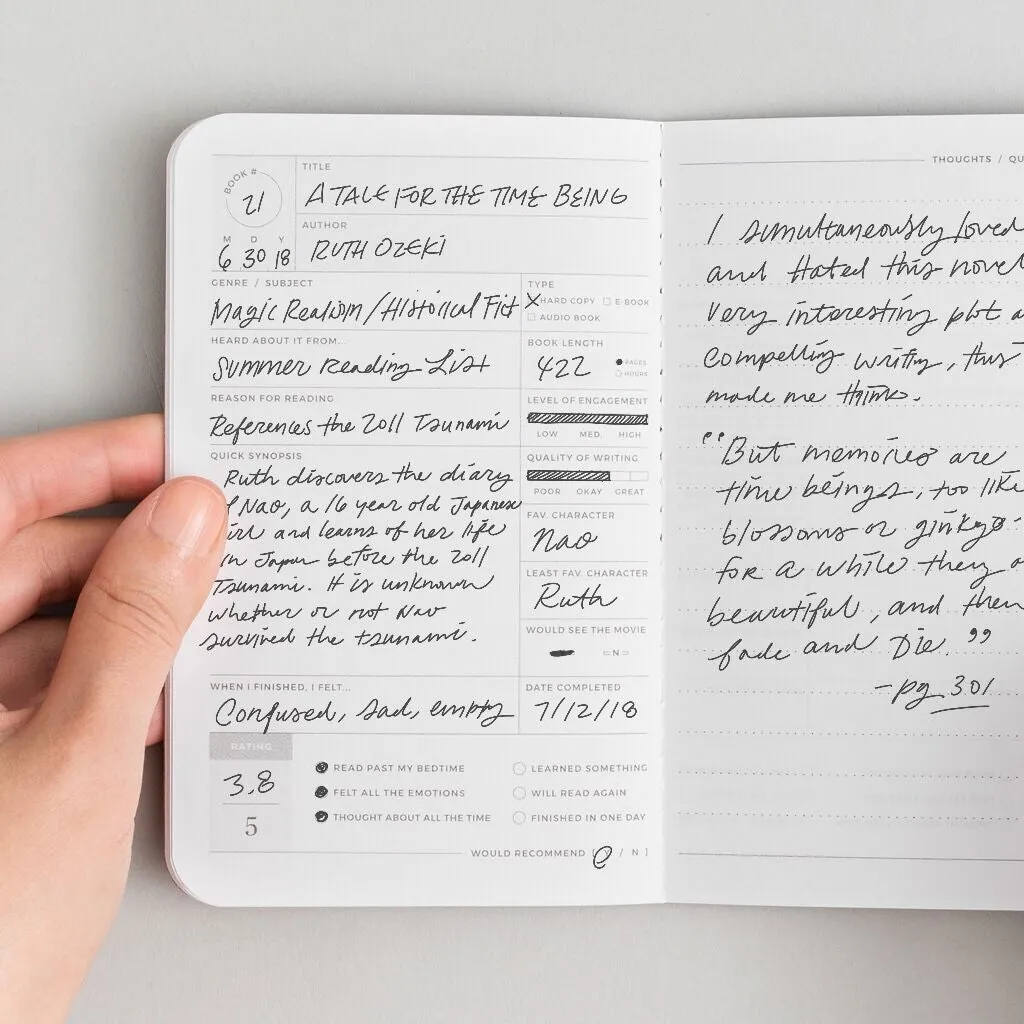 BOOK #
21
M D Y
6 30 18
TITLE
A TALE FOR THE TIME BEING
AUTHOR
RUTH OZEKI
GENRE / SUBJECT
Magic Realism / Historical Fict
TYPE
X HARD COPY E-BOOK
AUDIO BOOK
HEARD ABOUT IT FROM...
Summer Reading List
BOOK LENGTH
422
PAGES
HOURS
REASON FOR READING
References the 2011 Tsunami
LEVEL OF ENGAGEMENT
LOW MED HIGH
QUICK SYNOPSIS
Ruth discovers the diary
Nao, a 16 year old Japanese
and learns of her life
in Japan before the 2011
Tsunami. It is unknown
whether or not Nao
survived the tsunami.
QUALITY OF WRITING
POOR OKAY GREAT
FAV. CHARACTER
Nao
LEAST FAV. CHARACTER
Ruth
WOULD SEE THE MOVIE
N
WHEN I FINISHED, I FELT...
Confused, sad, empty
DATE COMPLETED
7/12/18
RATING
3.8
5
READ PAST MY BEDTIME
FELT ALL THE EMOTIONS
THOUGHT ABOUT ALL THE TIME
LEARNED SOMETHING
WILL READ AGAIN
FINISHED IN ONE DAY
WOULD RECOMMEND [ Y / N ]
THOUGHTS / QU
I simultaneously loved
and Hated this novel
Very interesting plot a
compelling writing, this
made me think.
"But memories are
time beings, too like
blossoms or ginkgo
for a while they a
beautiful, and then
fade and Die."
-pg 301